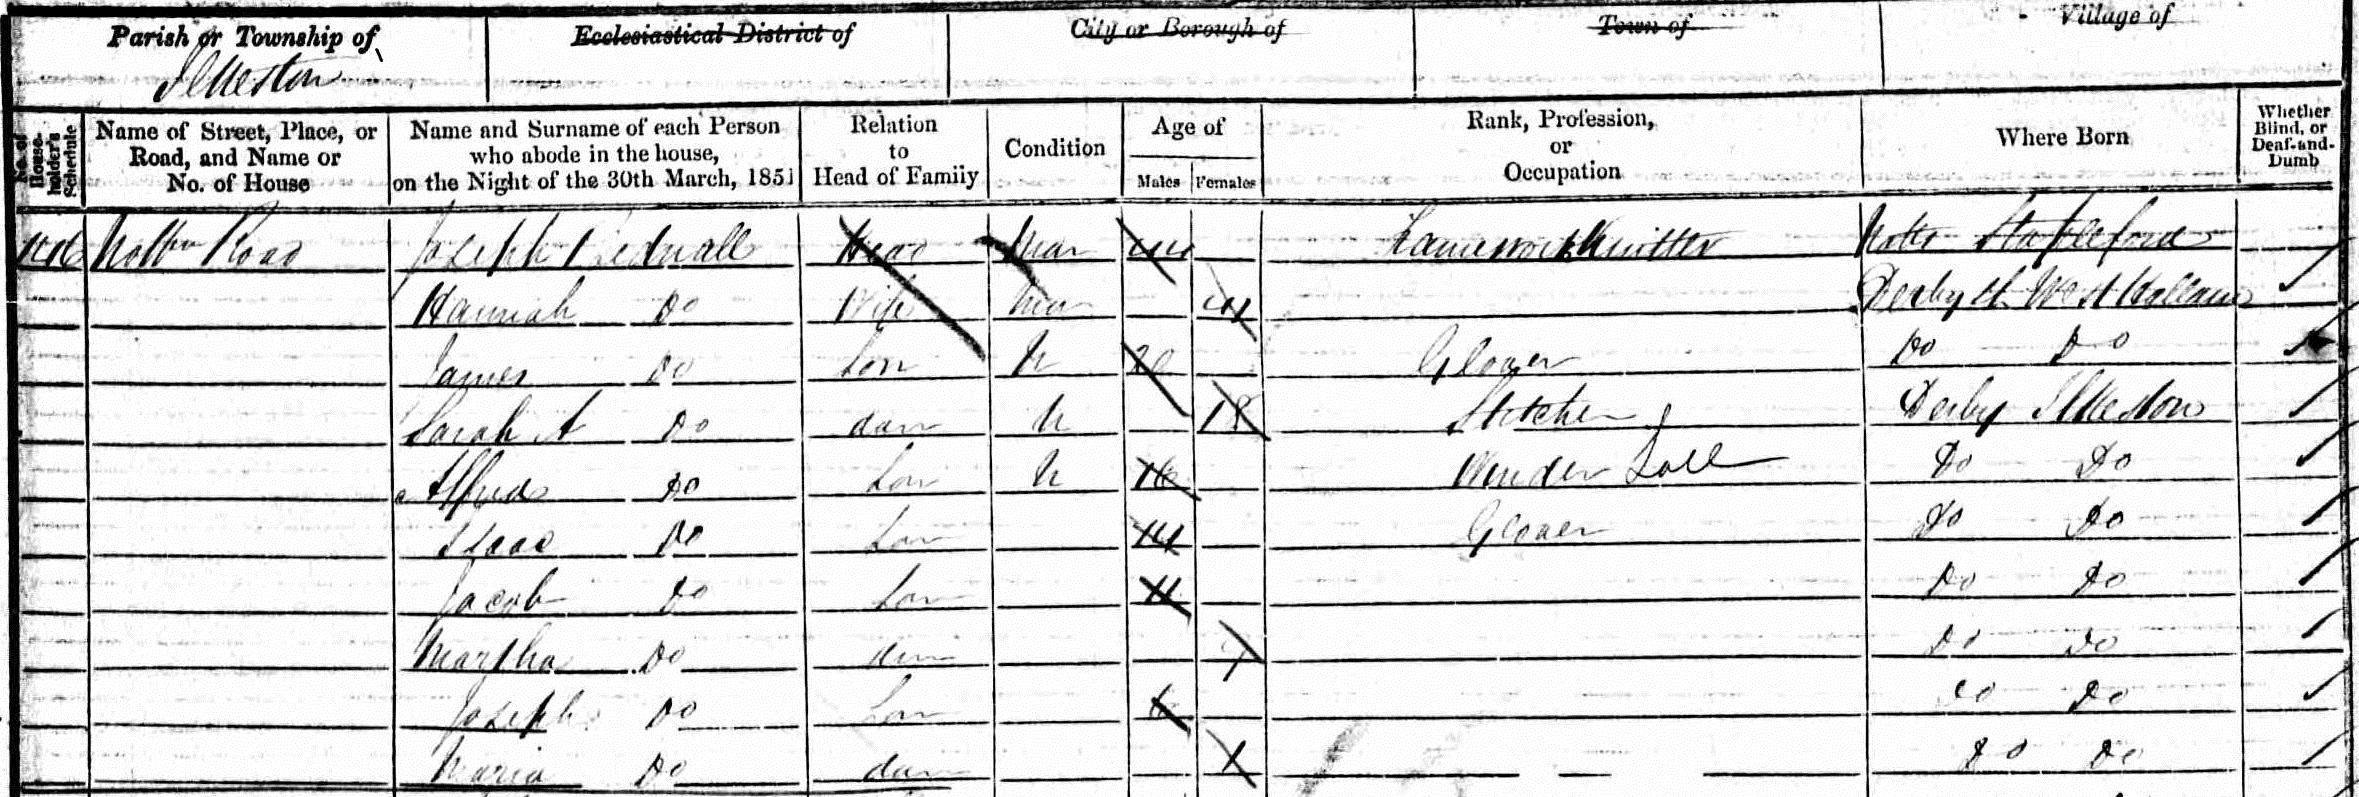 Parish or Township of
Ecclesiastical District of
City or Borough of
Town of
Village of
Ilkeston
No. of House-holder's Schedule
Name of Street, Place, or Road, and Name or No. of House
Name and Surname of each Person who abode in the house, on the Night of the 30th March, 1851
Relation to Head of Family
Condition
Age of
Males
Females
Rank, Profession, or Occupation
Where Born
Whether Blind, or Deaf-and-Dumb
Nottm Road Joseph Head Mar 44 Frameworkknitter Notts Stapleford
Hannah Do Wife Mar Derbysh West Hallam
James Do Son U 20 Glover Do Do
Sarah A Do daur U 18 Stitcher Derby Ilkeston
Alfred Do Son U 16 Winder Do Do
Isaac Do Son 14 Glover Do Do
Jacob Do Son 11 Do Do
Martha Do daur 7 Do Do
Joseph Do Son 6 Do Do
Maria Do daur 1 Do Do